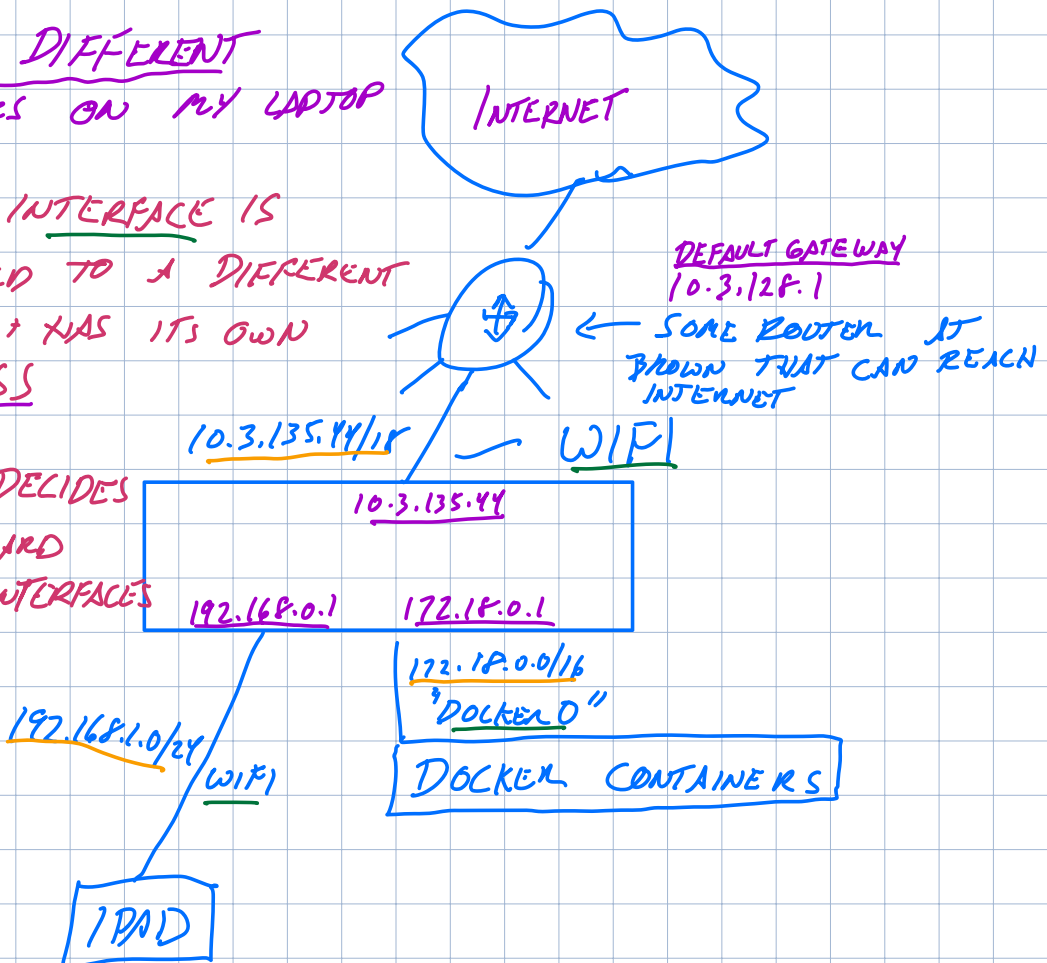 DIFFERENT
ES ON MY LAPTOP
INTERNET
INTERFACE IS
TO A DIFFERENT
HAS ITS OWN
SS
DECIDES
ARD
NTERFACES
DEFAULT GATEWAY
10.3.128.1
← SOME ROUTER AT
BROWN THAT CAN REACH
INTERNET
10.3.135.44/18
WIFI
10.3.135.44
192.168.0.1
172.18.0.1
172.18.0.0/16
"DOCKER0"
DOCKER CONTAINERS
192.168.1.0/24
WIFI
IPAD